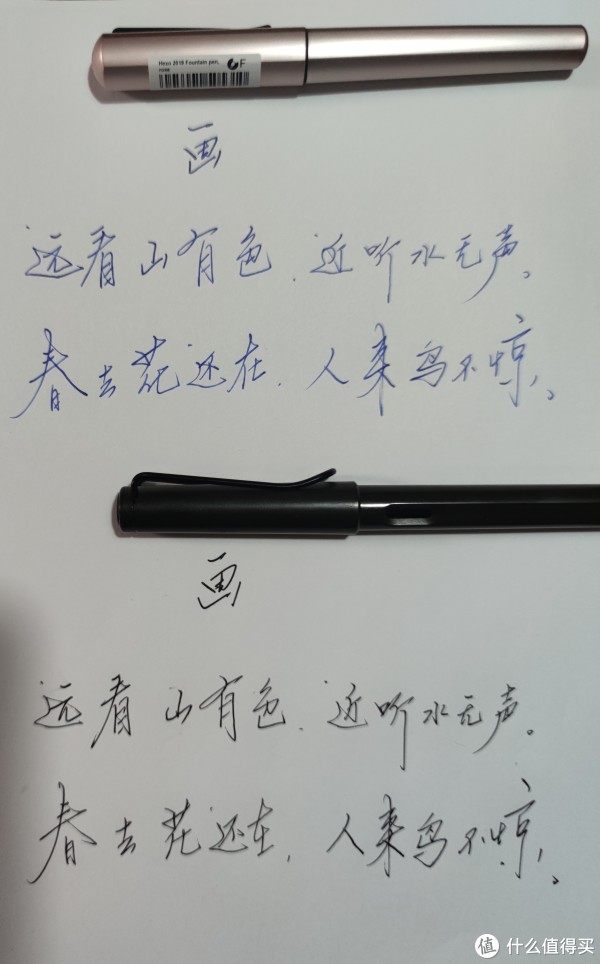 Hexo 2019 Fountain pen,
rosé
F
画
远看山有色,近听水无声。
春去花还在,人来鸟不惊。
画
远看山有色,近听水无声。
春去花还在,人来鸟不惊。
值 什么值得买